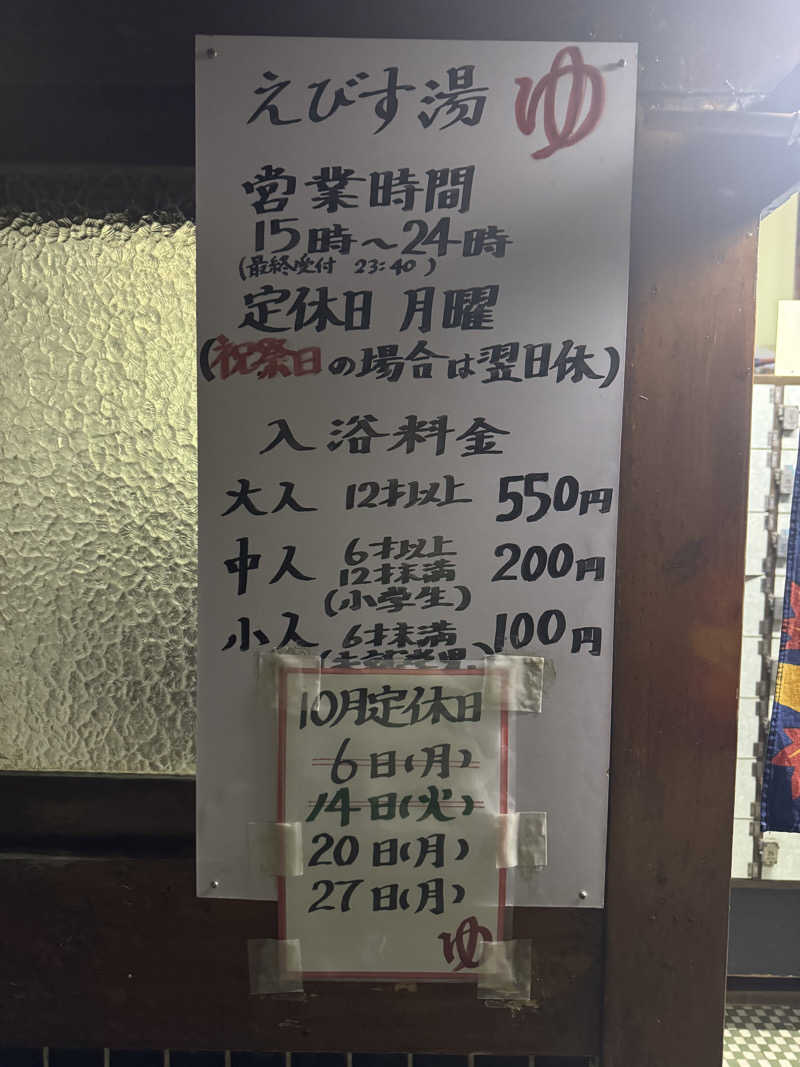 えびす湯 ゆ
営業時間
15時～24時
(最終受付 23:40)
定休日 月曜
(祝祭日の場合は翌日休)
入浴料金
大人 12才以上 550円
中人 6才以上 200円
12才未満
(小学生)
小人 6才未満 100円
10月定休日
6日(月)
14日(火)
20日(月)
27日(月)
ゆ